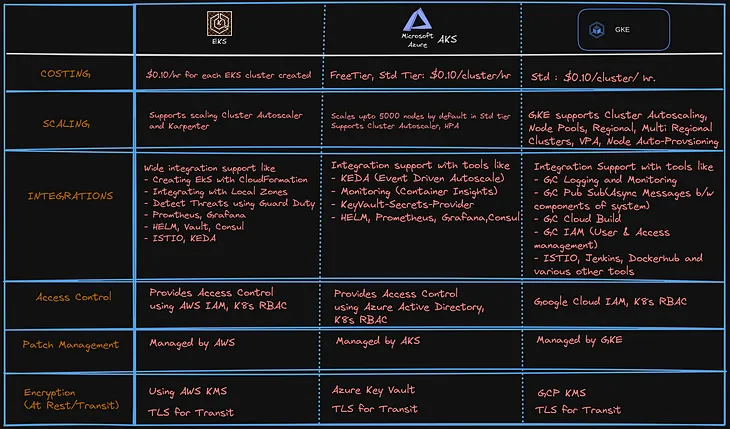 EKS
Microsoft
Azure
AKS
GKE
COSTING
$0.10/hr for each EKS cluster created
FreeTier, Std Tier: $0.10/cluster/hr
Std : $0.10/cluster/ hr.
SCALING
Supports scaling Cluster Autoscaler
and Karpenter
Scales upto 5000 nodes by default in Std tier
Supports Cluster Autoscaler, HPA
GKE supports Cluster Autoscaling,
Node Pools, Regional, Multi Regional
Clusters, VPA, Node Auto-Provisioning
INTEGRATIONS
Wide integration support like
- Creating EkS with CloudFormation
- Integrating with Local Zones
- Detect Threats using Guard Duty
- Promtheus, Grafana
- HELM, Vault, Consul
- ISTIO, KEDA
Integration support with tools like
- KEDA (Event Driven Autoscale)
- Monitoring (Container Insights)
- KeyVault-Secrets-Provider
- HELM, Prometheus, Grafana,Consul
Integration Support with tools like
- GC Logging and Monitoring
- GC Pub Sub(Async Messages b/w
components of system)
- GC Cloud Build
- GC IAM (User & Access
management)
- ISTIO, Jenkins, Dockerhub and
various other tools
Access Control
Provides Access Control
using AWS IAM, K8s RBAC
Provides Access Control
using Azure Active Directory,
K8s RBAC
Google Cloud IAM, K8s RBAC
Patch Management
Managed by AWS
Managed by AKS
Managed by GKE
Encryption
(At Rest/Transit)
Using AWS KMS
TLS for Transit
Azure Key Vault
TLS for Transit
GCP KMS
TLS for Transit